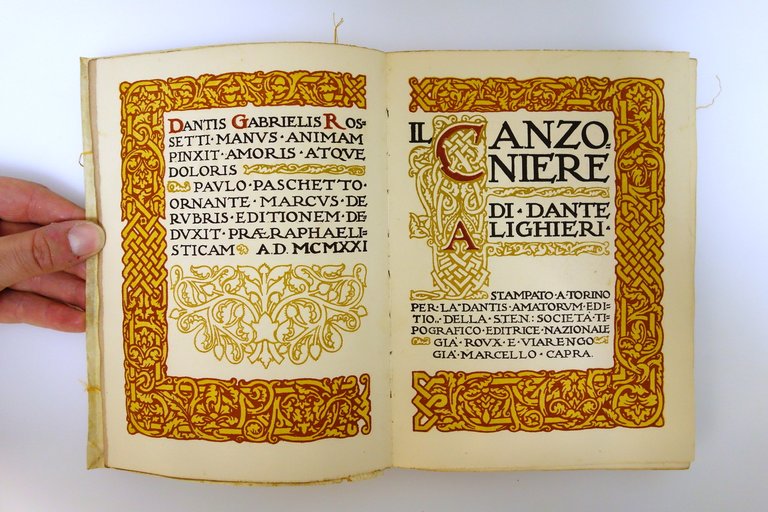 DANTIS GABRIELIS ROS=
SETTI·MANVS·ANIMAM
PINXIT·AMORIS·ATQVE
DOLORIS
PAVLO·PASCHETTO·
ORNANTE·MARCVS·DE
RVBRIS·EDITIONEM·DE=
DVXIT·PRÆRAPHAELI=
STICAM A.D. MCMXXI
IL CANZO=
NIERE
DI·DANTE
ALIGHIERI·
STAMPATO·A·TORINO
PER·LA·DANTIS·AMATORVM·EDI=
TIO·,·DELLA·STEN: SOCIETÀ·TI=
POGRAFICO·EDITRICE·NAZIONALE
GIÀ·ROVX·E·VIARENGO
GIÀ·MARCELLO·CAPRA.